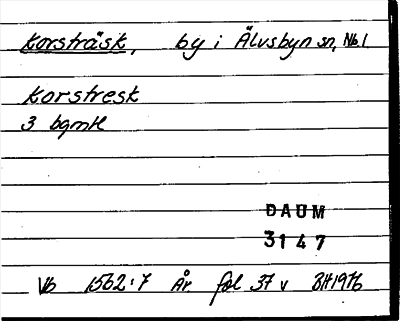 Korsträsk, by i Älvsbyn sn, Nb.l.
Korstresk
3 bgmtl
DAUM
3147
Vb 1562:7 År fol 37 v BH1976